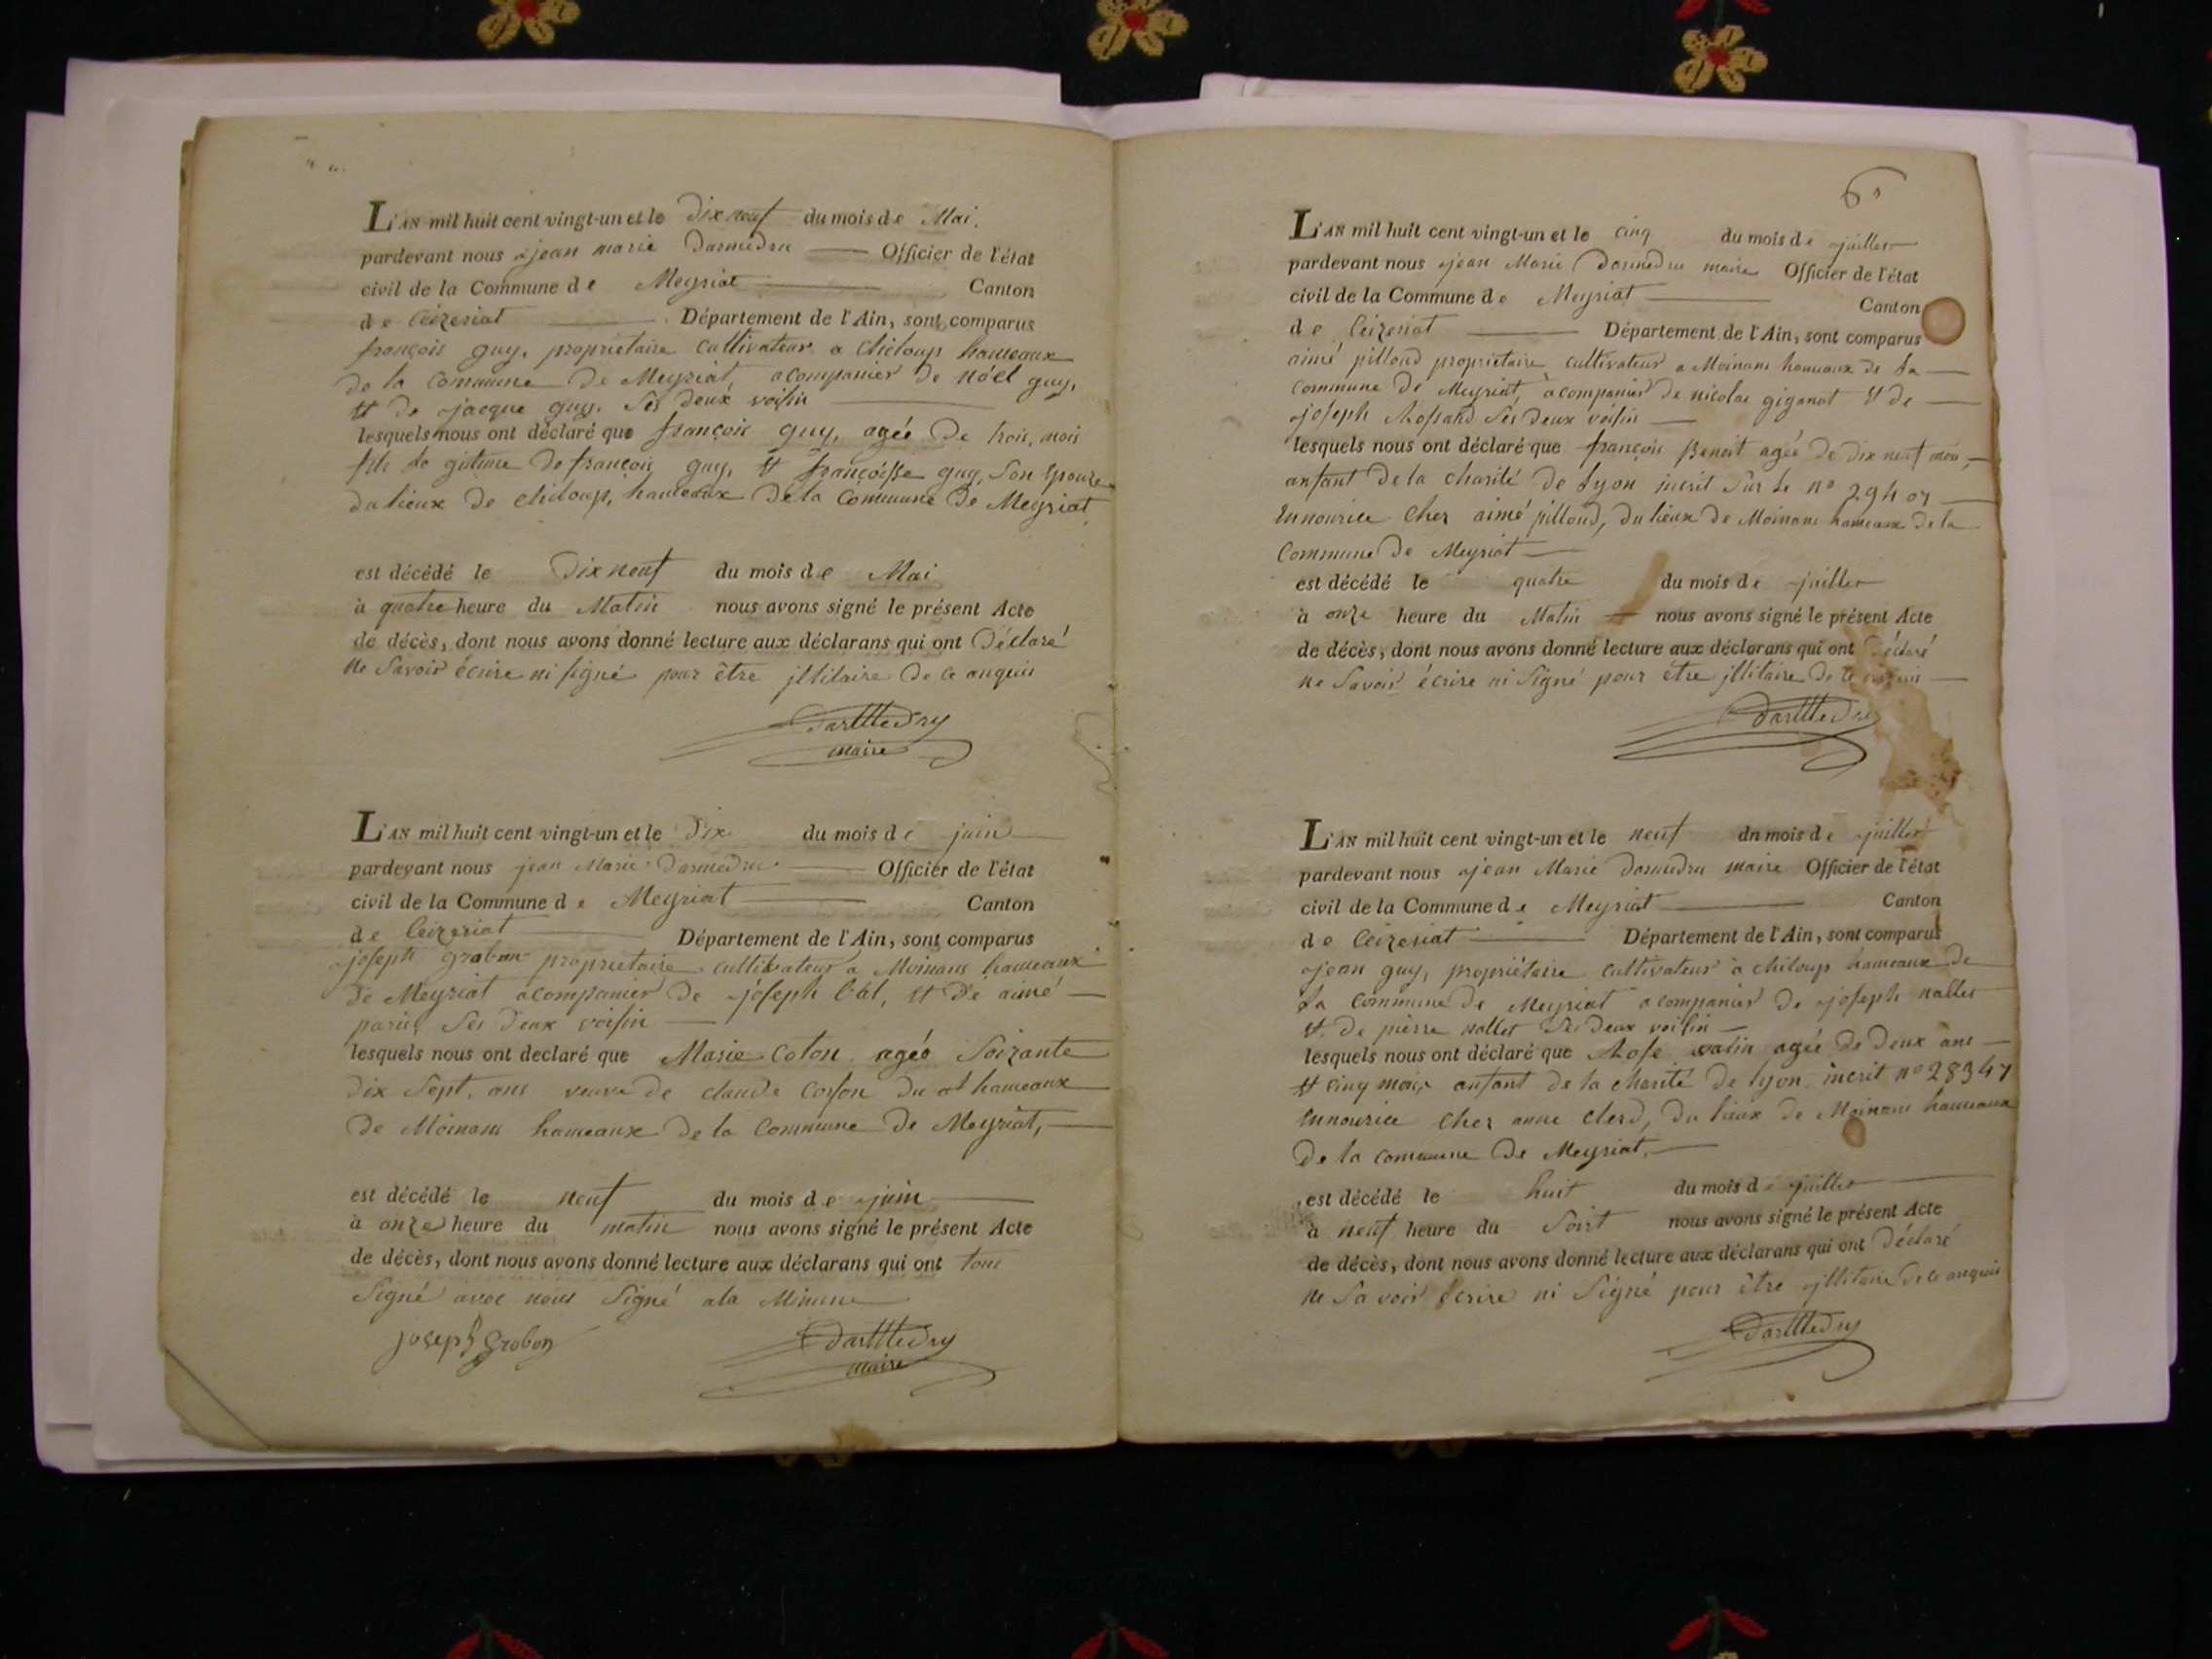 L'AN mil huit cent vingt-un et le dix neuf du mois de Mai.
pardevant nous jean marie Darmedru Officier de l'état
civil de la Commune de Meyriat Canton
de Ceizeriat Département de l'Ain, sont comparus
françois guy, propriétaire cultivateur a chiloup hameaux
de la commune De Meyriat, acompanier de nöel guy,
et de jacque guy. ses deux voisin
lesquels nous ont déclaré que françois guy, agée De trois, mois
fils le gitime De françois guy, et françoisse guy, son epouze
du lieux de chiloup, hameaux De la Commune De Meyriat
est décédé le Dix neuf du mois de Mai
à quatre heure du Matin nous avons signé le présent Acte
de décès, dont nous avons donné lecture aux déclarans qui ont Déclaré
ne Savoir écrire ni signé pour être jllitaire De ce anquis
Darmedru
maire
L'AN mil huit cent vingt-un et le Dix du mois de juin
pardevant nous jean Marie Darmedru Officier de l'état
civil de la Commune de Meyriat Canton
de Ceizeriat Département de l'Ain, sont comparus
joseph grabon propriétaire cultivateur a Moinans hameaux
de Meyriat acompanier de joseph et De aimé
ses Deux voisin
lesquels nous ont declaré que Marie Coton agée Soizante
dix Sept. ans veuve de claude du hameaux
De Moinans hameaux De la Commune De Meyriat,
est décédé le neuf du mois de juin
à onze heure du matin nous avons signé le présent Acte
de décès, dont nous avons donné lecture aux déclarans qui ont tous
Signé avec nous Signé ala Minune
joseph Grobon
Darmedru
maire
6
L'AN mil huit cent vingt-un et le cinq du mois de juillet
pardevant nous jean Marie Darmedru maire Officier de l'état
civil de la Commune de Meyriat Canton
de Ceizeriat Département de l'Ain, sont comparus
aimé pilloud propriétaire cultivateur a Moinans hameaux de la
commune De Meyriat, acompanier de nicolas giganot et de
joseph ses deux voisin
lesquels nous ont déclaré que françois Benoit agée De dix neuf mois,
anfant De la charité De Lyon inscrit Sur le nº 29407
Ennourice Cher aimé pilloud, Du lieux De Moinans hameaux De la
Commune De Meyriat
est décédé le quatre du mois de juillet
à onze heure du Matin nous avons signé le présent Acte
de décès, dont nous avons donné lecture aux déclarans qui ont Déclaré
ne Savoir écrire ni Signé pour être jllitaire De ce anquis
Darmedru
L'AN mil huit cent vingt-un et le neuf dn mois de juillet
pardevant nous jean Marie Darmedru maire Officier de l'état
civil de la Commune de Meyriat Canton
de Ceizeriat Département de l'Ain, sont comparus
jean guy, propriétaire cultivateur a chiloup hameaux De
la commune De Meyriat acompanier De joseph nallet
et De pierre nallet ses Deux voisin
lesquels nous ont déclaré que Rose vatin agée De Deux ans
et cinq mois anfant De la charité De lyon inscrit nº 28347
Ennourice Cher anne Clerd, Du lieux De Moinans hameaux
De la commune De Meyriat.
est décédé le huit du mois de juillet
à neuf heure du Soirt nous avons signé le présent Acte
de décès, dont nous avons donné lecture aux déclarans qui ont Déclaré
ne Savoir Ecrire ni Signé pour être jllitaire De ce anquis
Darmedru